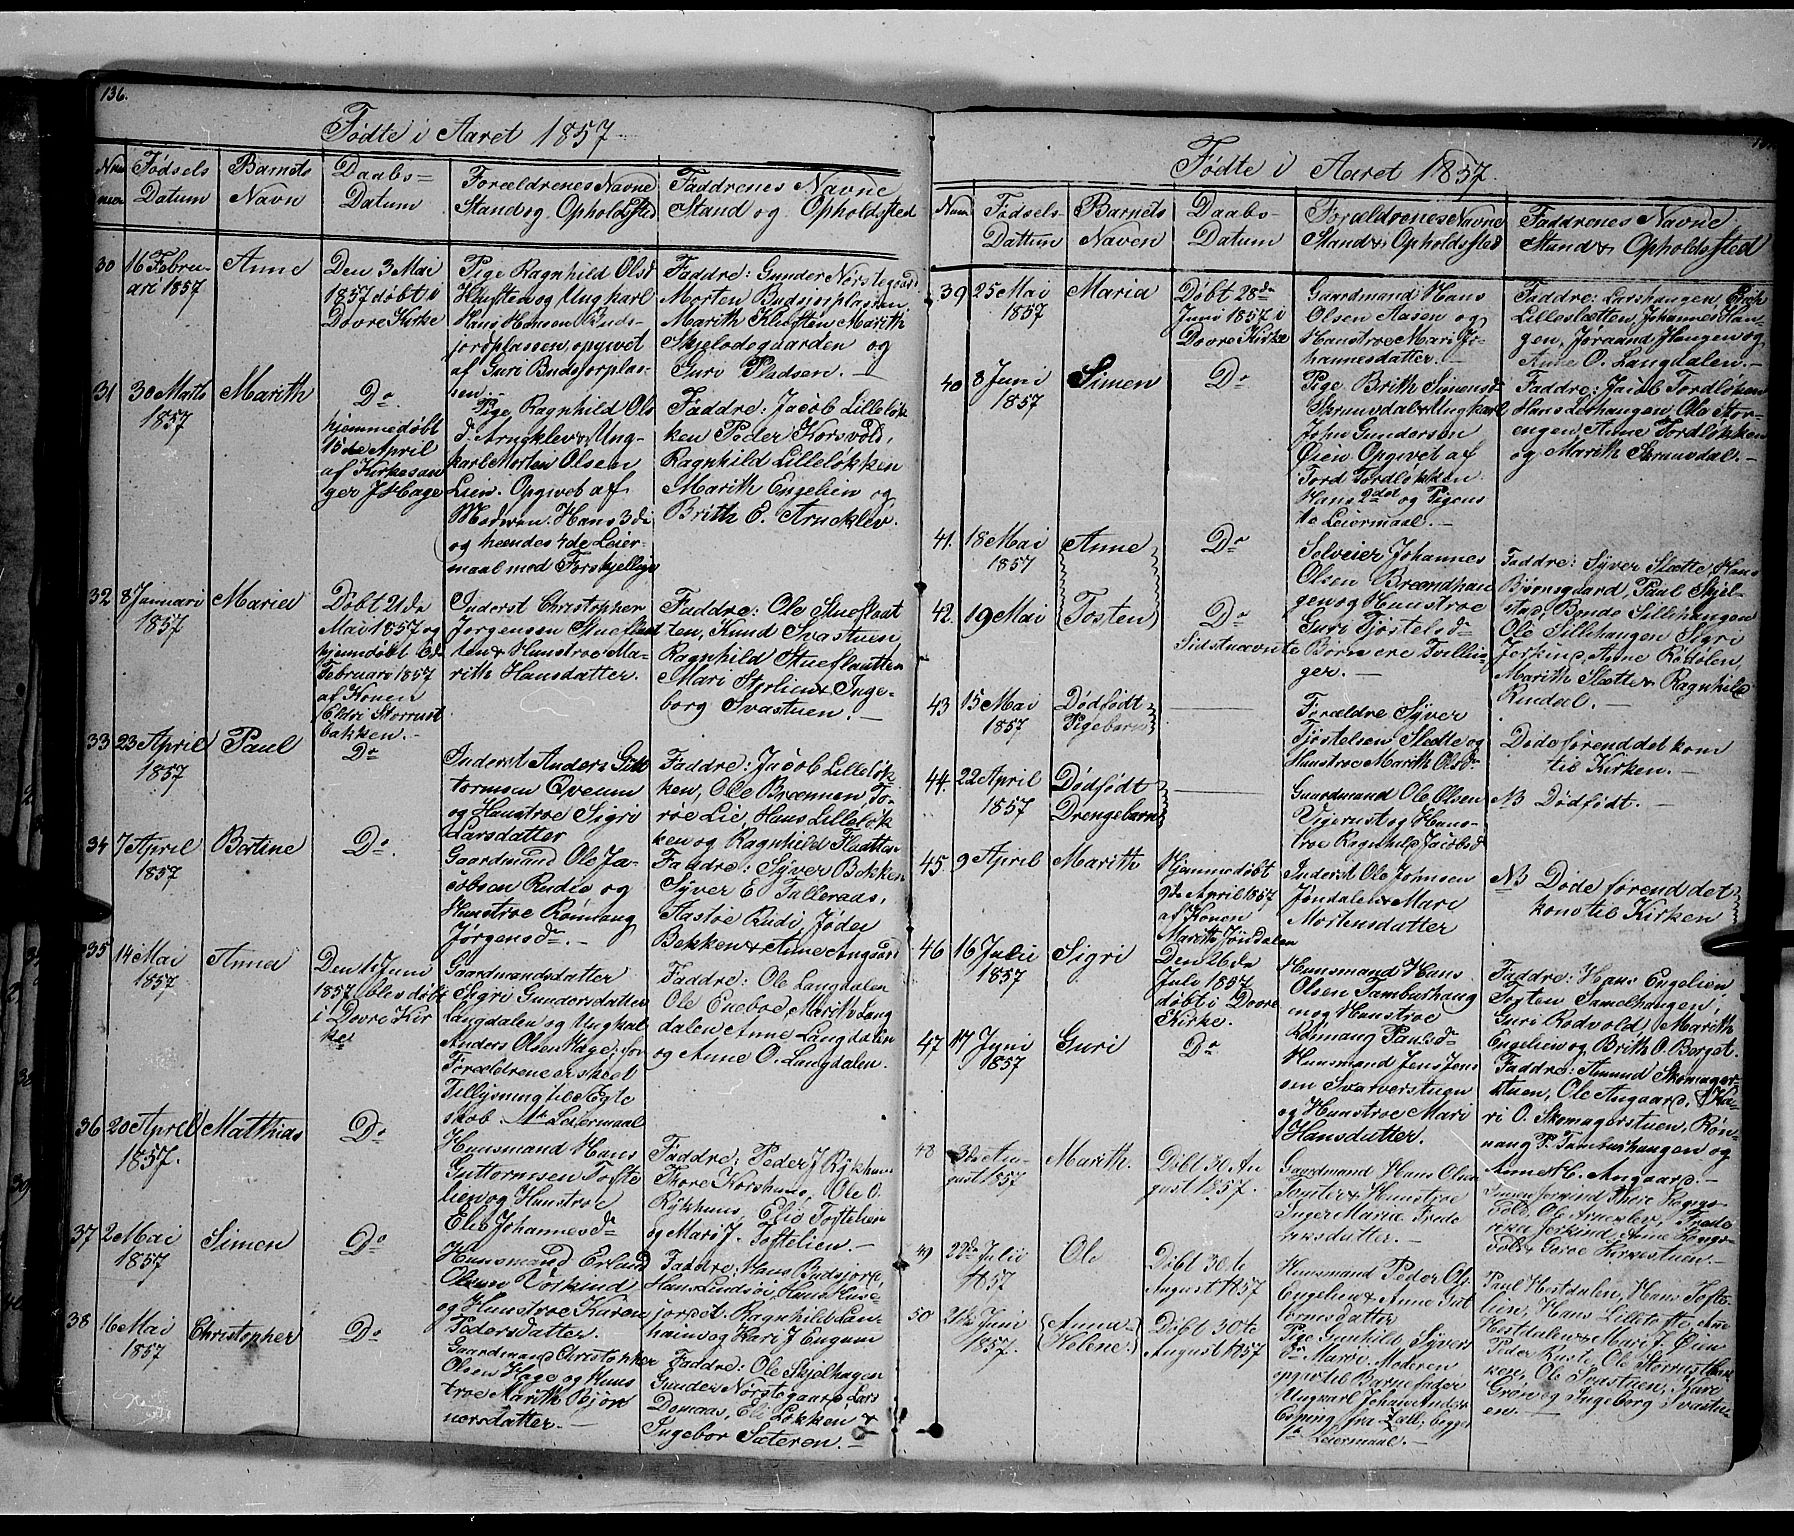 136.
Fødte i Aaret 1857
Fødsels Datum
Barnets Navn
Daabs= Datum
Forældrenes Navne Stand og Opholdsted
Faddrenes Navne Stand og Opholdsted
30
16 Febru-
ari 1857
Anne
Den 3 Mai
1857 døbt i
Dovre Kirke
Pige Ragnhild Olsd
Kluften og Ungkarl
Hans Hansen Buds-
jordplassen, opgivet
af Guri Budsjorplas-
sen.-
Faddre: Gunder Norstegaard
Morten Budsjorplassen
Marith Kluften Marith
Skjelodegaarden og
Guri Pladsen. -
31
30 Marts
1857
Marith
Do.
hjemmedøbt
15de April
af Kirkesan
ger J Hage
Pige Ragnhild Ols
d. Arneklev & Ung-
karl Morten Olsen
Lien. Opgivet af
Modren. Hans 3di
og hændes 4de Leier-
maal med Forskjellige
Faddre: Jacob Lilleløk
ken Peder Korsvold,
Ragnhild Lilleløkken
Marith Engelien og
Brith E. Arneklev.
32
8 Januari
1857
Maria
Døbt 21de
Mai 1857 og
hjemdøbt 6de
Februari 1857
af Konen
Eldri Storrust
bakken.-
Inderst Christopher
Jørgensen Stueflaat
ten & Hunstroe Ma-
rith Hansdatter.
Faddre: Ole Stueflaat
ten, Knud Svastuen
Ragnhild Stueflautten
Mari Storlien & Inge-
borg Svastuen. -
33
23 April
1857
Paul
Do
Inderst Anders Gut
tormsen Qveum
og Hunstroe Sigri
Larsdatter
Faddre: Jacob Lilleløk
ken, Ole Brænnen, To-
røe Lie, Hans Lilleløk
ken og Ragnhild Flatten
34
7 April
1857
Bertine
Do.
Gaardmand Ole Ja-
cobsen Rudie og
Hunstroe Rønnaug
Jørgensdr. -
Faddre: Syver Bokken
Syver E Talleraas,
Aastøe Rudi, Jøda
Bekken & Anne Angaard
35
14 Mai
1857
Anna
Den 1te Juni
1857 blev døbt
i Dovre Kir
ke
Gaardmandsdatter
Sigri Gundersdatter
Langdalen og Ungkal
Anders Olsen Hage, for
Forældrene er skeet
Tillysning til Ægte
skab. 1te Leiermaal
Faddre: Ole Langdalen
Ole Eneboe, Marith Lang
dalen Anne Langdalen
og Anne O. Langdalen.
36
20 April
1857.
Matthias
Do
Huusmand Hans
Guttormsen Tofte
lien og Hunstroe
Eli Johannesdr
Faddre: Peder J Rykhus
Thore Korshuus, Ole O.
Rykhuus, Elie Toftelien
og Mari J. Toftelien. -
37
2 Mai
1857
Simen
Do
Huusmand Erland
Olsen Vorkind
og Hunstroe Karen
Pedersdatter.
Faddre: Hans Budsjord,
Hans Lindsøi, Hans Huse-
jordet. Ragnhild Lan-
heim og Kari J Engum
38
16 Mai
1857
Christopher
Do
Gaardmand Christopher
Olsen Hage og Huns
troe Marith Bjør
nersdatter. -
Faddre: Ole Skjelhagen
Gunder Norstegaard Lars
Domaas, Eli Løkken &
Ingebor Sæteren. -
Fødte i Aaret 1857
Num
Fødsels Dattum
Barnets Naven
Daabs- Datum
Forældrenes Navne Stand & Opholdsted
Faddrenes Navne Stand & Opholdsted
39
25 Mai
1857
Maria
Døbt 28de
Juni 1857 i
Dovre Kirke
Gaardmand Hans
Olsen Aasen og
Hunstroe Mari Jo-
hannesdatter. -
Faddre: Lars Haugen, Erik
Lillesletten, Johannes Hau-
gen, Jøraand Haugen og
Anne O. Langdalen. -
40
8 Juni
1857
Simen
Do
Pige Brith Simensd
Skransdal & Ungkarl
John Gundersen
Øien Opgivet af
Tord Tordløkken
Hans 2det og Pigens
1te Leiermaal. -
Faddre: Jacob Tordløken
Hans Lerhaugen, Ole Stor-
engen, Anne Tordløkken
og Marith Skransdal. -
41.
18 Mai
1857
Anne
Do
42.
19 Mai
Tosten
Do
Sidstnævnte Børn ere Tvillin-
ger. -
Selveier Johannes
Olsen Brændhau
gen og Hunstroe
Guri Tjostelsdr
Faddre: Syver Slette Hans
Bjørnsgaard, Paul Skjel-
stad, Bonde Lillehaugen
Ole Lillehaugen, Sigri
Jorkind, Anne Rødolen,
Marith Slætte & Ragnhild
Rindal. -
43
15 Mai
1857
Dødfødt
Pigebarn
Forældre Syver
Tjostelsen Slette og
Hunstroe Marith Olsdr
Døde førend det kom
til Kirken. -
44.
22 April
1857
Dødfødt
Drengebarn
Gaardmand Ole Olsen
Vigerust og Huns-
troe Ragnhild Jacobsd
NB Dødfødt. -
45.
9 April
Marith
Hjemmedøbt
9de April 1857
af Konen
Marith Jøndalen
Inderst Ole Johnsen
Jøndalen & Mari
Mortensdatter
NB Døde førend det
kom til Kirken
46
16 Julii
1857
Sigri
Den 26de
Juli 1857
døbt i Dovre
Kirke.
Huusmand Hans
Olsen Tamburhaug
en og Hunstroe
Rønnaug Paulsdr
Faddre: Hans Engelien,
Tosten Samelhaugen,
Guri Rodvold, Marith
Engelien og Brith O. Berget.
47
17 Juni
1857
Guri
Do
Huusmand Jens Jens
sen Svarverstuen
og Hunstroe Mari
Hansdatter.
Faddre: Amund Skomager-
stuen, Ole Angaard, Ka-
ri O. Skomagerstuen, Røn-
naug P. Tamburhaugen og
Anne H. Angaard. -
48
3die Au-
gust 1857
Marith.
Døbt 30 Au
gust 1857.
Gaardmand Hans Olsen
Inger Marie Frede
riksdatter. -
49
22de Julii
1857
Ole
Døbt 30te
August 1857
Huusmand Peder Ols
Engelien & Anne Gut
tormsdatter
Paul Hestdalen, Hans Tofte-
lien, Hans Lilletofte, Ane
Hestdalen & Mari J. Øien
50
21de Juni
1857.
Anna=
Helene.
Døbt 30te
August 1857
Pige Gunhild Syvers
dr Marøe. Moderen
opgivet til Barnefader
Ungkarl Johan Anders
Esping fra Lell, begges
1te Leiermaal. -
Peder Rust, Ole Storrusthaug
ken, Ole Svastuen, Kari
Grøn og Ingeborg Svastu-
en. -